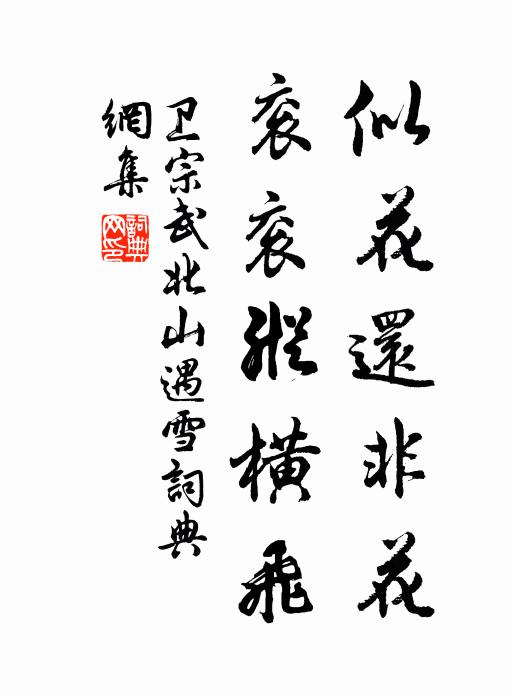 似花還非花
衮衮縱橫飛
卫宗武北山遇雪詞典
網集
詞典
网印